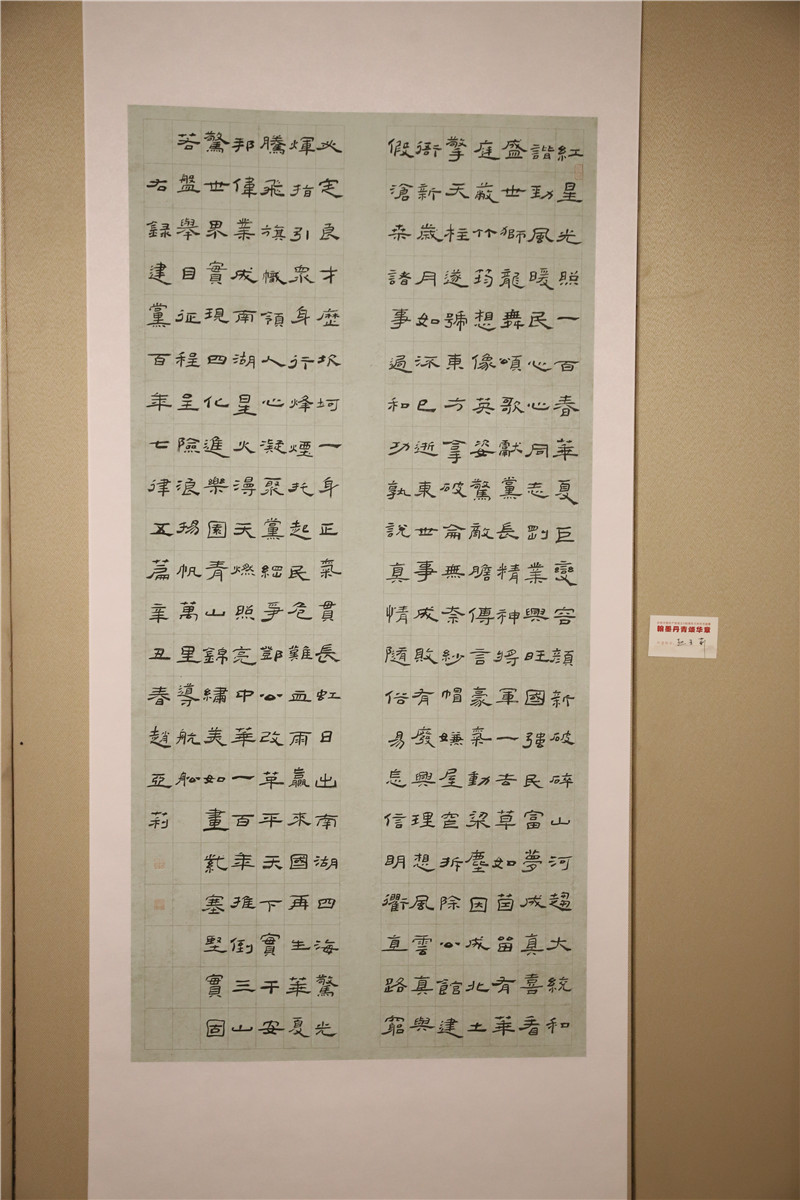 紅星光照一百春華夏巨變容顏新破碎山河趨大統和
諧勁風暖民心心同志刱業興旺國強民富夢成真喜看
盛世獅龍舞頌歌獻黨長精神將軍一去草如茵留有華
庭蔽竹筠想像英姿驚敵膽傳言豪氣動梁塵因成北土
擎天柱遂號東方拿破侖無奈紗帽嫌屋窄拆除公館建
衙新歲月如流已逝東世事成敗有廢興理想風雲真與
假滄桑諸事過和功孰說真情隨俗易怠信明衢直路窮
火定良才歷坎坷一身正氣貫長虹日出南湖四海驚光
煇指引眾身行烽煙托起民危難血雨贏來國再生華夏
騰飛旗幟領人心凝聚黨經爭鄧公改革平天下實干安
邦偉業成南湖星火得天燃照亮中華一百年推倒三山
驚世界實現四化進樂園青山錦繡美如畫塞堅實固
若盤舉目征程呈險浪揚帆萬里導航船
右錄建黨百年七律五篇辛丑春趙亞莉
翰墨丹青颂华章
赵亚莉